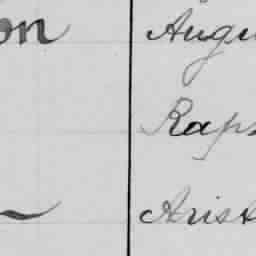 on Augu
Raps
Arist